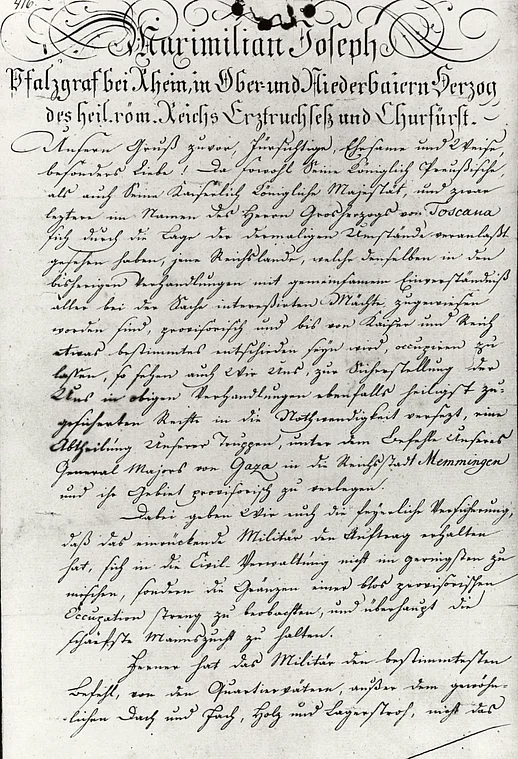 416.
Maximilian Joseph
Pfalzgraf bei Rhein, in Ober- und Niederbaiern Herzog
des heil. röm. Reichs Erztruchseß und Churfürst.
Unsern Gruß zuvor, Fürsichtige, Ehrsame und Weise
besonders Liebe! Da sowohl Seine Königlich Preußische
als auch Seine Kaiserlich Königliche Majestät, und zwar
leztere im Namen des Herrn Grosherzogs von Toscana
sich durch die Lage der dermaligen Umstände veranlaßt
gesehen haben, jene Reichslande, welche denselben in den
bisherigen Verhandlungen mit gemeinsamem Einverständniß
aller bei der Sache interessirten Mächte zugewiesen
worden sind, provisorisch und bis von Kaiser und Reich
etwas bestimmtes entschieden seyn wird, occupiren zu
lassen, so sehen auch Wir Uns, zur Sicherstellung der
Uns in obigen Verhandlungen ebenfalls heiligst zu-
gesicherten Rechte in die Nothwendigkeit versezt, eine
Abtheilung Unserer Truppen, unter dem Befehle Unseres
General Majors von Gaza in die Reichsstadt Memmingen
und ihr Gebiet provisorisch zu verlegen.
Dabei geben Wir euch die feyerliche Versicherung,
daß das einrückende Militär den Auftrag erhalten
hat, sich in die Civil-Verwaltung nicht im geringsten zu
mischen, sondern die Gränzen einer blos provisorischen
Occupation streng zu beobachten, und überhaupt die
schärfste Mannszucht zu halten.
Ferner hat das Militär den bestimmtesten
Befehl, von den Quartiervätern, außer dem gewöhn-
lichen Dach und Fach, Holz und Lagerstroh, nicht das